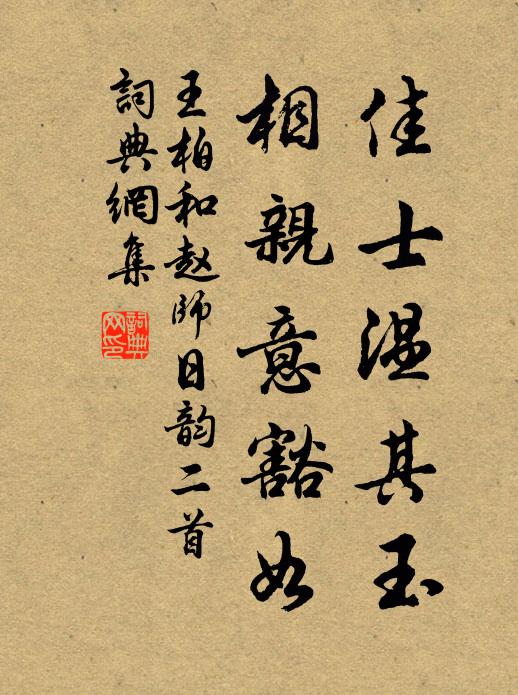 佳士温其玉
相親意豁如
王柏和赵師日韵二首
詞典網集
詞典網印